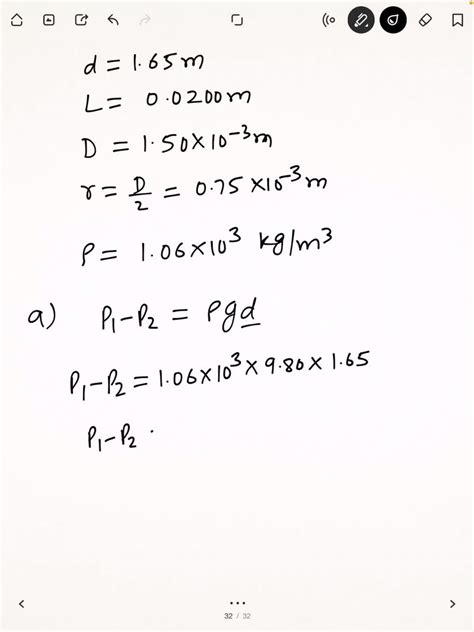 d = 1.65m
L = 0.0200m
D = 1.50×10⁻³m
r = D/2 = 0.75×10⁻³m
ρ = 1.06×10³ kg/m³
a) P₁-P₂ = ρgd
P₁-P₂ = 1.06×10³×9.80×1.65
P₁-P₂ .
32 / 32